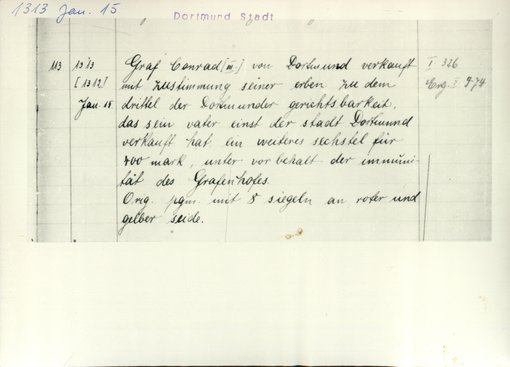 1313 Jan. 15
Dortmund Stadt
113 1313 Graf Conrad [III.] von Dortmund verkauft I 326
[1312] mit zustimmung seiner erben zu dem Erg. I 974
Jan. 15 drittel der Dortmunder gerichtsbarkeit,
das sein vater einst der stadt Dortmund
verkauft hat ein weiteres sechstel für
400 mark, unter vorbehalt der immuni-
tät des Grafenhofes.
Orig. pgm. mit 8 siegeln an roter und
gelber seide.